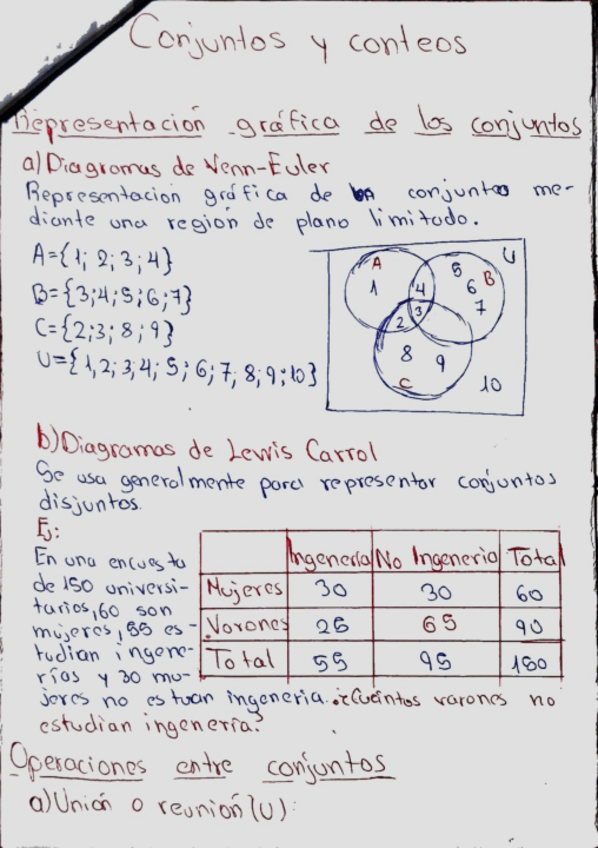 Conjuntos y conteos
Representación gráfica de los conjuntos
a) Diagramas de Venn-Euler
Representación gráfica de un conjunto me-
diante una región de plano limitado.
A={1; 2; 3; 4}
B={3;4;5;6;7}
C={2;3; 8; 9}
U={1,2; 3;4; 5; 6; 7; 8; 9; 10}
A B C U
1 4 5 6 7
2 3
8 9 10
b) Diagramas de Lewis Carrol
Se usa generalmente para representar conjuntos
disjuntos.
Ej:
En una encuesta
de 150 universi-
tarios, 60 son
mujeres, 55 es-
tudian ingene-
rías y 30 mu-
jeres no estuan ingeneria. ¿Cuántos varones no
estudian ingenería?
Ingenería No Ingeneria Total
Mujeres 30 30 60
Varones 25 65 90
Total 55 95 150
Operaciones entre conjuntos
a) Unión o reunión (U):